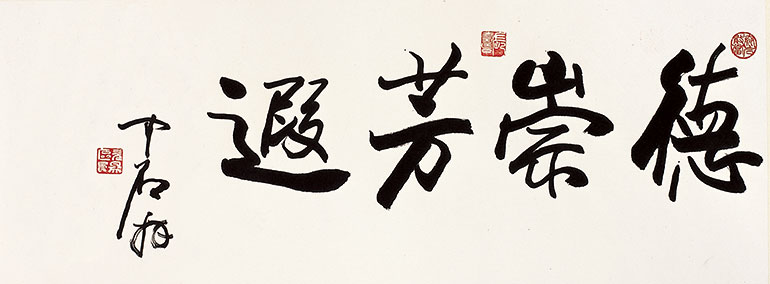 德崇芳遐
中石拜